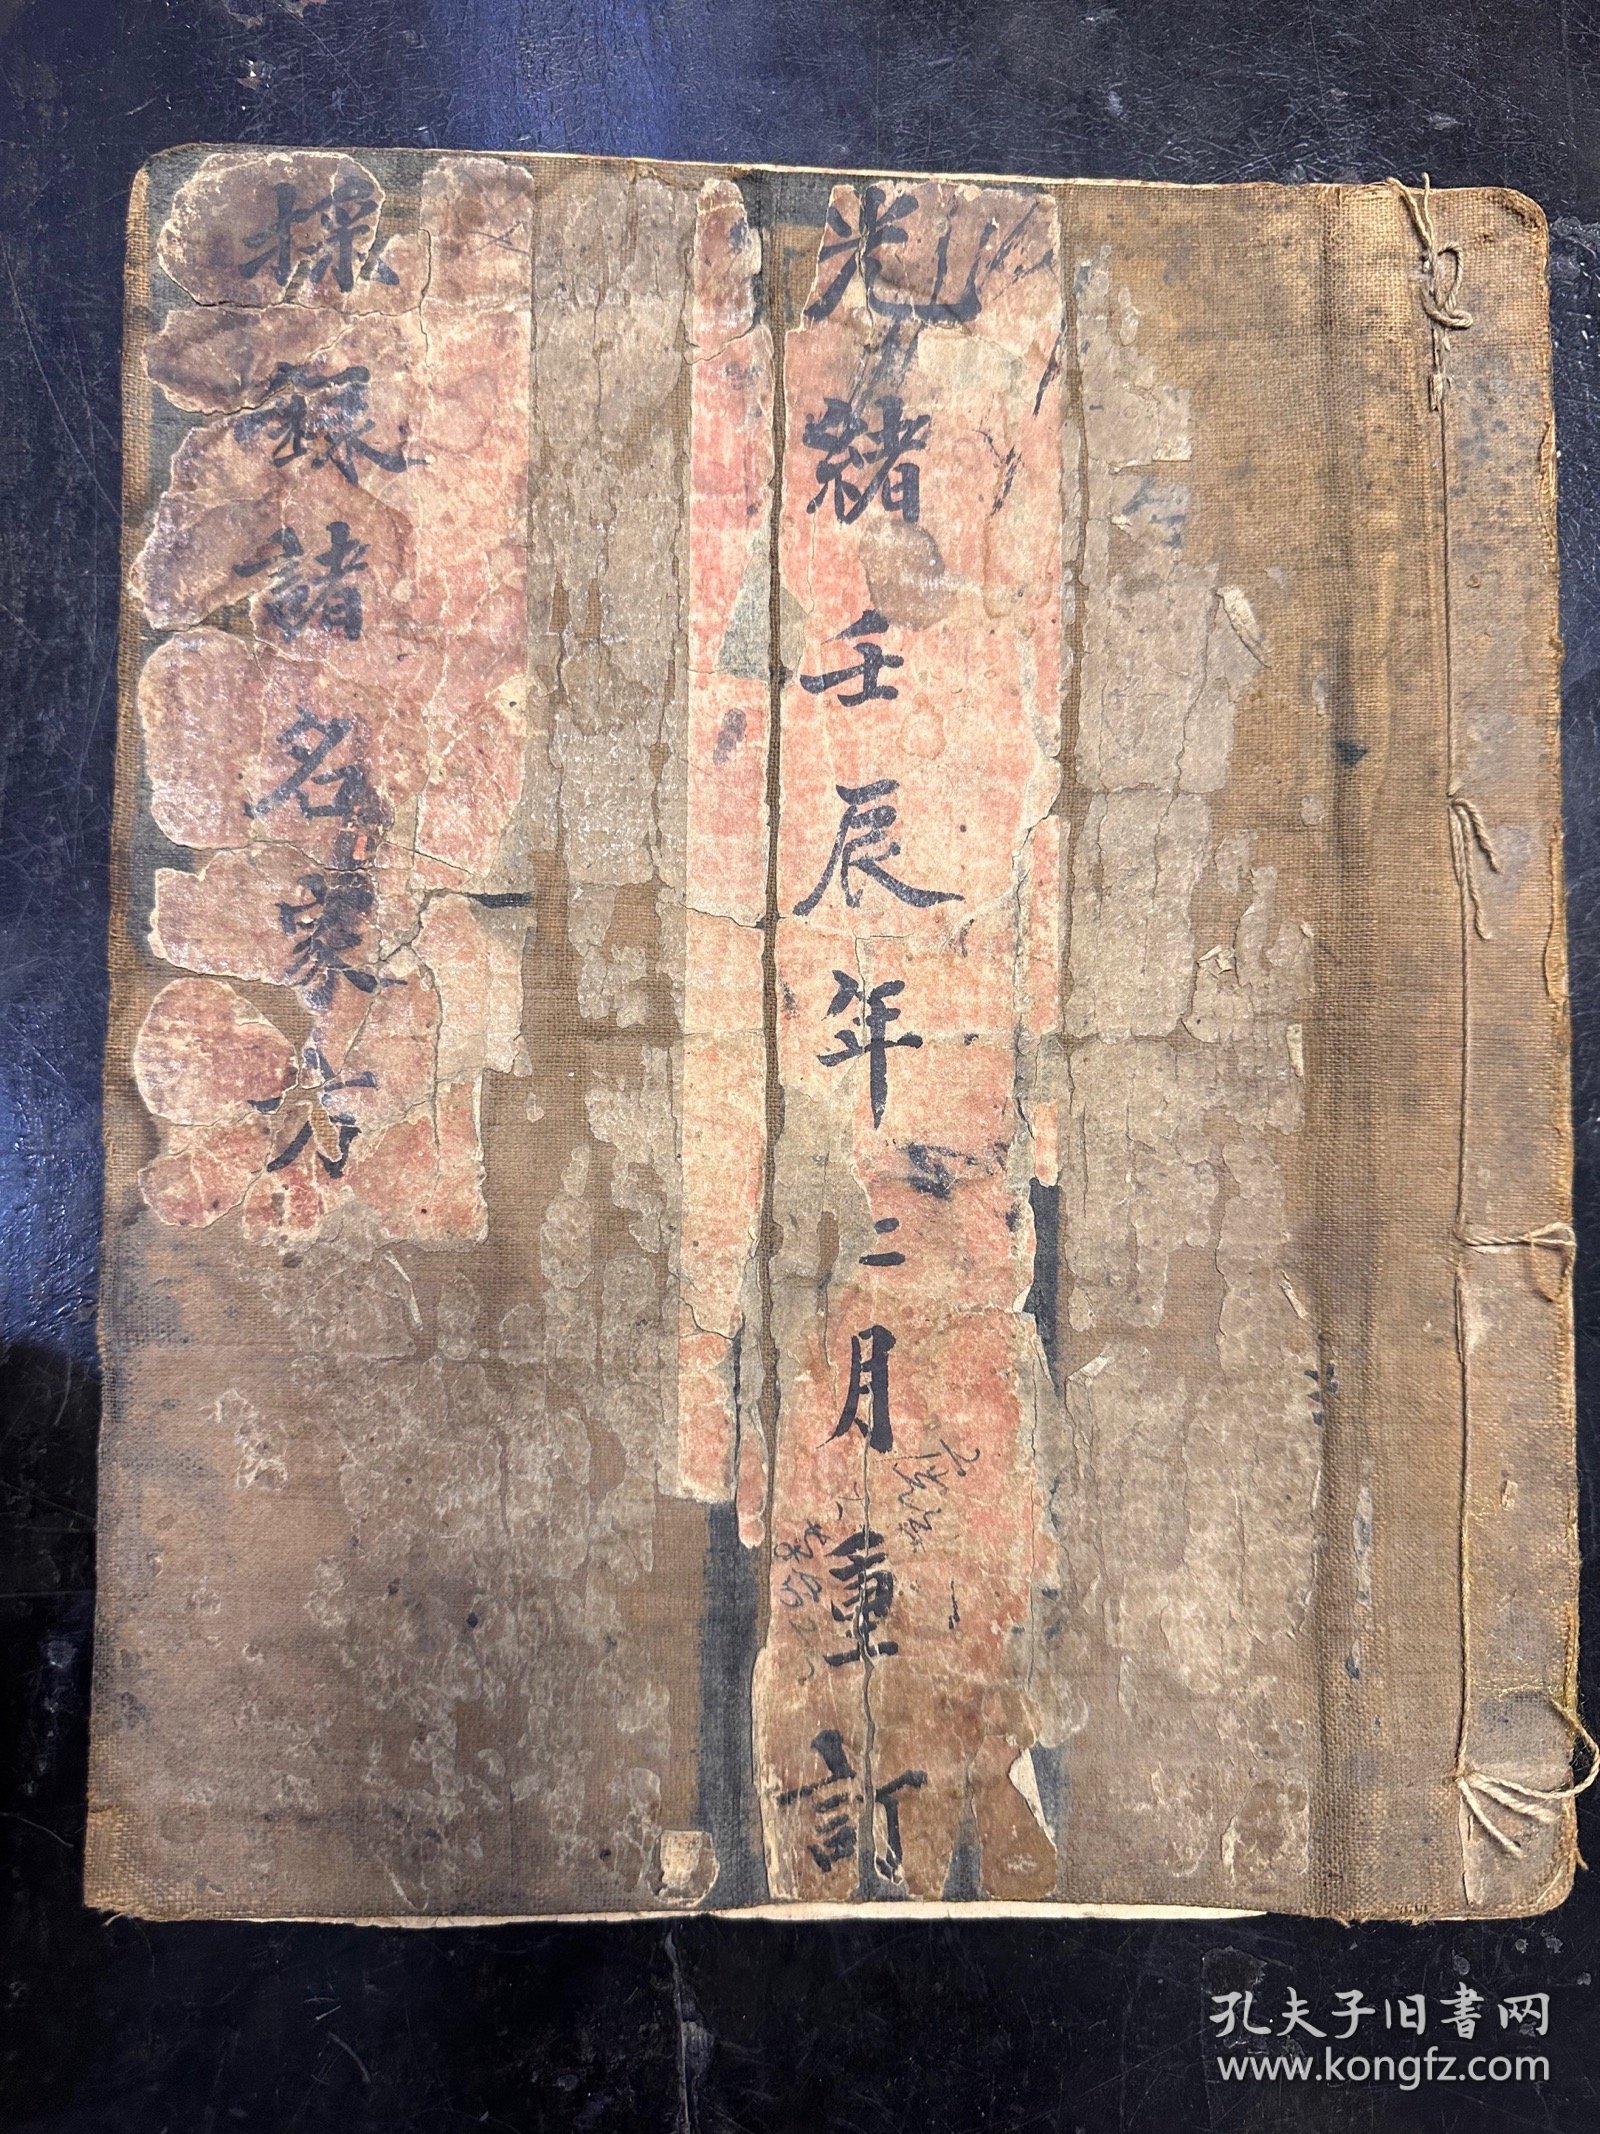 光緒壬辰年二月重訂
採錄諸名家方
孔夫子旧書网
www.kongfz.com